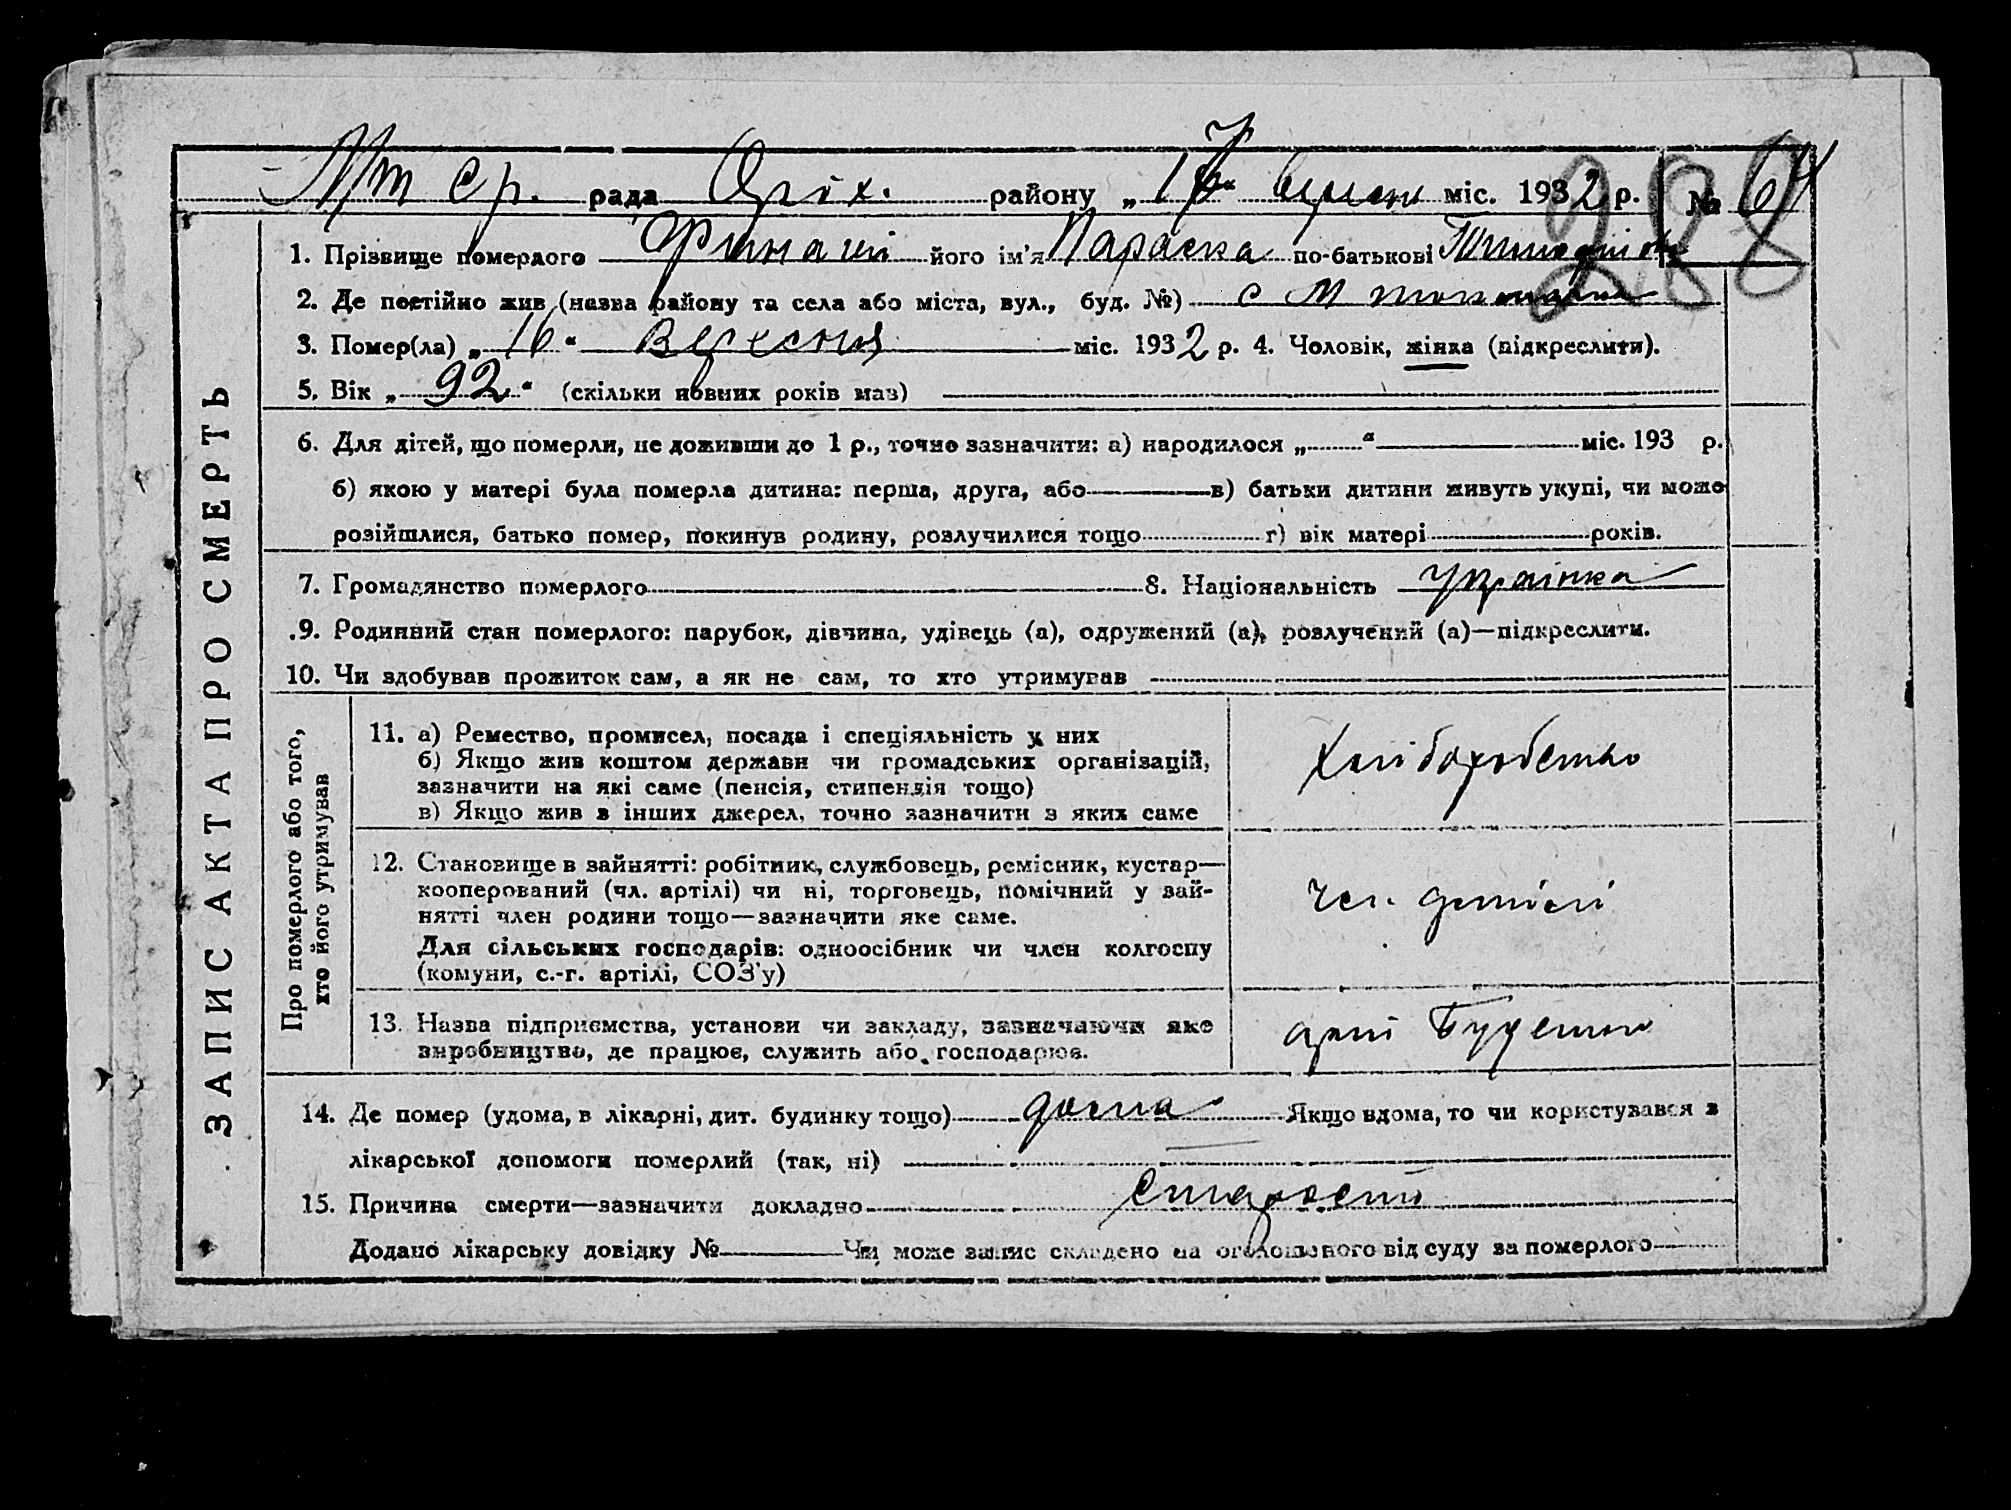 рада Оріх. району „17“ міс. 1932 р. № 64
288
ЗАПИС АКТА ПРО СМЕРТЬ
1. Прізвище померлого його ім'я Параска по-батькові
2. Де постійно жив (назва району та села або міста, вул., буд. №) с М
3. Помер(ла) „16“ Вересня міс. 1932 р. 4. Чоловік, жінка (підкреслити).
5. Вік „92“ (скільки повних років мав)
6. Для дітей, що померли, не доживши до 1 р., точно зазначити: а) народилося „ “ міс. 193 р.
б) якою у матері була померла дитина: перша, друга, або в) батьки дитини живуть укупі, чи може
розійшлися, батько помер, покинув родину, розлучилися тощо г) вік матері років.
7. Громадянство померлого 8. Національність українка
9. Родинний стан померлого: парубок, дівчина, удівець (а), одружений (а), розлучений (а)—підкреслити.
10. Чи здобував прожиток сам, а як не сам, то хто утримував
Про померлого або того,
хто його утримував
11. а) Ремество, промисел, посада і спеціяльність у них
б) Якщо жив коштом держави чи громадських організацій,
зазначити на які саме (пенсія, стипендія тощо)
в) Якщо жив з інших джерел, точно зазначити з яких саме
Хліборобство
12. Становище в зайнятті: робітник, службовець, ремісник, кустар—
кооперований (чл. артілі) чи ні, торговець, помічний у зай-
нятті член родини тощо—зазначити яке саме.
Для сільських господарів: одноосібник чи член колгоспу
(комуни, с.-г. артілі, СОЗ'у)
чл. артілі
13. Назва підприємства, установи чи закладу, зазначаючи яке
виробництво, де працює, служить або господарює.
арт
14. Де помер (удома, в лікарні, дит. будинку тощо) дома Якщо вдома, то чи користувався з
лікарської допомоги померлий (так, ні)
15. Причина смерти—зазначити докладно старости
Додано лікарську довідку № Чи може запис складено на оголошеного від суду за померлого